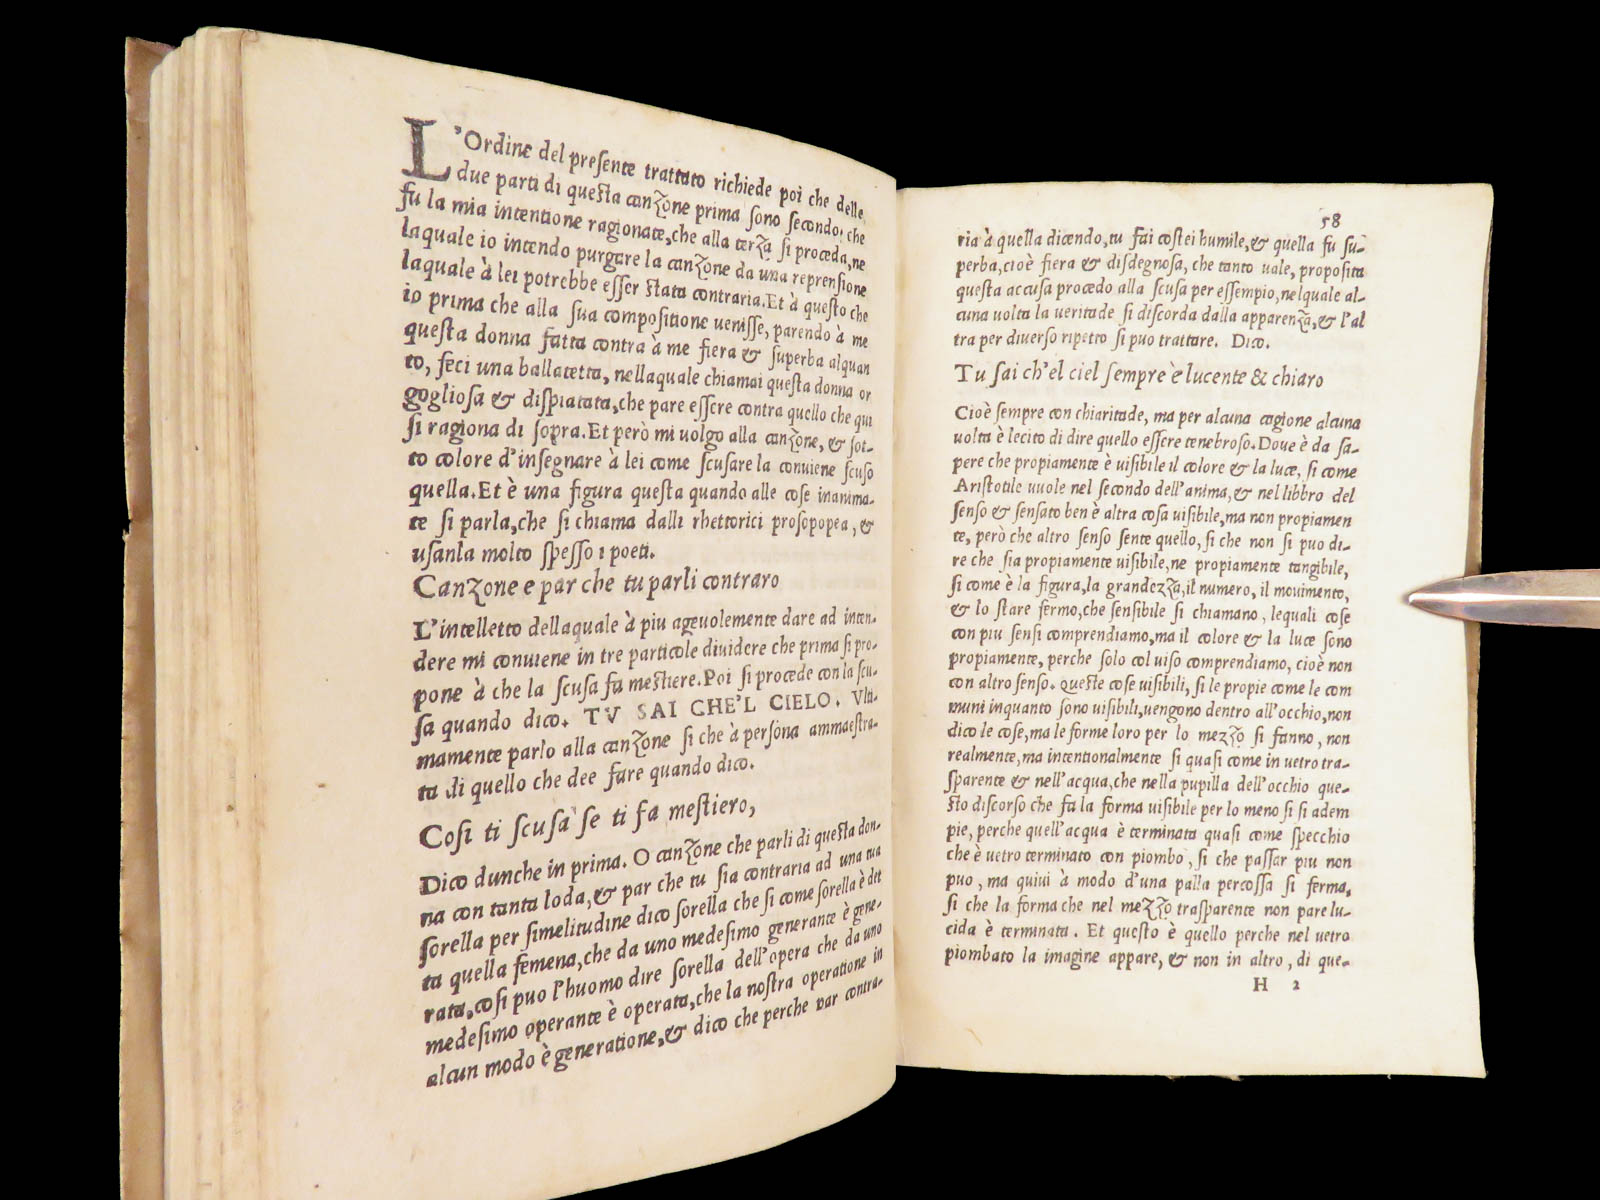 L'Ordine del preſente trattato richiede poi che delle
due parti di queſta canzone prima ſono ſecondo, che
fu la mia intentione ragionate, che alla terza ſi proceda, ne
laquale io intendo purgare la canzone da una reprenſione
laquale à lei potrebbe eſſer ſtata contraria. Et à queſto che
io prima che alla ſua compoſitione ueniſſe, parendo à me
queſta donna fatta contra à me fiera & ſuperba alquan
to, feci una ballatetta, nellaquale chiamai queſta donna or
goglioſa & diſpiatata, che pare eſſere contra quello che qui
ſi ragiona di ſopra. Et però mi uolgo alla canzone, & ſot-
to colore d'inſegnare à lei come ſcuſare la conuiene ſcuſo
quella. Et è una figura queſta quando alle coſe inanima-
te ſi parla, che ſi chiama dalli rhettorici proſopopea, &
uſanla molto ſpeſſo i poeti.
Canzone e par che tu parli contraro
L'intelletto dellaquale à piu ageuolemente dare ad inten-
dere mi conuiene in tre particole diuidere che prima ſi pro-
pone à che la ſcuſa fa meſtiere. Poi ſi procede con la ſcu-
ſa quando dico. TV SAI CHE'L CIELO. Vlti-
mamente parlo alla canzone ſi che à perſona ammaeſtra-
ta di quello che dee fare quando dico.
Coſi ti ſcuſa ſe ti fa meſtiero,
Dico dunche in prima. O canzone che parli di queſta don-
na con tanta loda, & par che tu ſia contraria ad una tua
ſorella per ſimelitudine dico ſorella che ſi come ſorella è det
ta quella femena, che da uno medeſimo generante è gene-
rata, coſi puo l'huomo dire ſorella dell'opera che da uno
medeſimo operante è operata, che la noſtra operatione in
alcun modo è generatione, & dico che perche par contra-
58
ria à quella dicendo, tu fai coſtei humile, & quella fu ſu-
perba, cioè fiera & diſdegnoſa, che tanto uale, propoſita
queſta accuſa procedo alla ſcuſa per eſſempio, nelquale al-
cuna uolta la ueritade ſi diſcorda dalla apparenza, & l'al
tra per diuerſo ripetto ſi puo trattare. Dico.
Tu ſai ch'el ciel ſempre è lucente & chiaro
Cioè ſempre con chiaritade, ma per alcuna cagione alcuna
uolta è lecito di dire quello eſſere tenebroſo. Doue è da ſa-
pere che propiamente è uiſibile il colore & la luce, ſi come
Ariſtotile uuole nel ſecondo dell'anima, & nel libbro del
ſenſo & ſenſato ben è altra coſa uiſibile, ma non propiamen
te, però che altro ſenſo ſente quello, ſi che non ſi puo di-
re che ſia propiamente uiſibile, ne propiamente tangibile,
ſi come è la figura, la grandezza, il numero, il mouimento,
& lo ſtare fermo, che ſenſibile ſi chiamano, lequali coſe
con piu ſenſi comprendiamo, ma il colore & la luce ſono
propiamente, perche ſolo col uiſo comprendiamo, cioè non
con altro ſenſo. Queſte coſe uiſibili, ſi le propie come le com
muni inquanto ſono uiſibili, uengono dentro all'occhio, non
dico le coſe, ma le forme loro per lo mezzo ſi fanno, non
realmente, ma intentionalmente ſi quaſi come in uetro tra-
ſparente & nell'acqua, che nella pupilla dell'occhio que-
ſto diſcorſo che fa la forma uiſibile per lo meno ſi ſi adem
pie, perche quell'acqua è terminata quaſi come ſpecchio
che è uetro terminato con piombo, ſi che paſſar piu non
puo, ma quiui à modo d'una palla percoſſa ſi ferma,
ſi che la forma che nel mezzo traſparente non pare lu-
cida è terminata. Et queſto è quello perche nel uetro
piombato la imagine appare, & non in altro, di que-
H 2